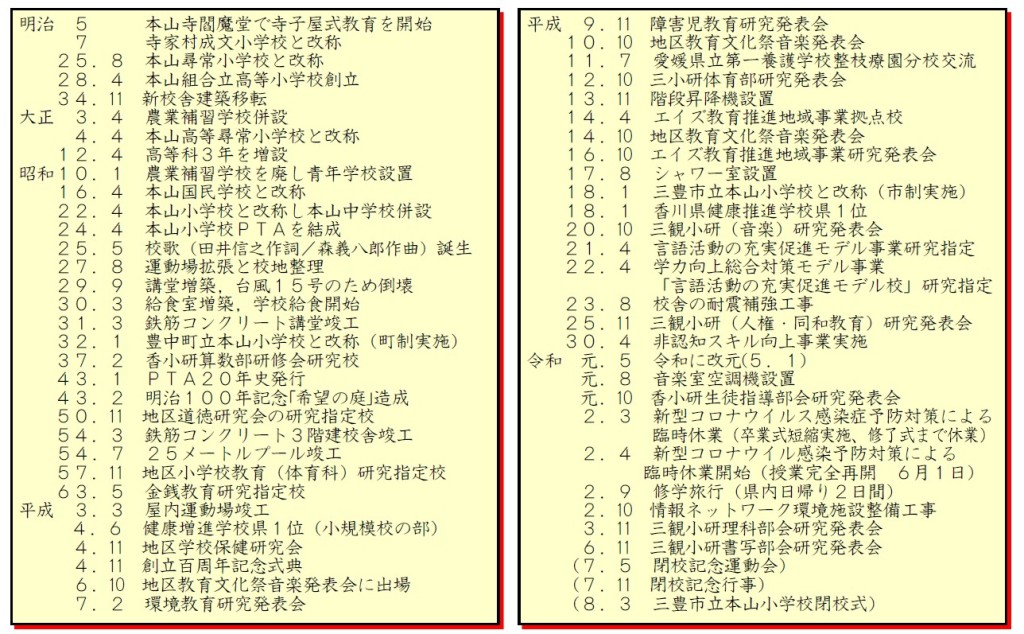 明治　５　　　本山寺閻魔堂で寺子屋式教育を開始
７　　　寺家村成文小学校と改称
２５．８　本山尋常小学校と改称
２８．４　本山組合立高等小学校創立
３４．11　新校舎建築移転
大正　３．４　農業補習学校併設
４．４　本山高等尋常小学校と改称
１２．４　高等科３年を増設
昭和１０．１　農業補習学校を廃し青年学校設置
１６．４　本山国民学校と改称
２２．４　本山小学校と改称し本山中学校併設
２４．４　本山小学校ＰＴＡを結成
２５．５　校歌（田井信之作詞／森義八郎作曲）誕生
２７．８　運動場拡張と校地整理
２９．９　講堂増築，台風１５号のため倒壊
３０．３　給食室増築，学校給食開始
３１．３　鉄筋コンクリート講堂竣工
３２．１　豊中町立本山小学校と改称（町制実施）
３７．２　香小研算数部研修会研究校
４３．１　ＰＴＡ２０年史発行
４３．２　明治１００年記念｢希望の庭｣造成
５０．11　地区道徳研究会の研究指定校
５４．３　鉄筋コンクリート３階建校舎竣工
５４．７　２５メートルプール竣工
５７．11　地区小学校教育（体育科）研究指定校
６３．５　金銭教育研究指定校
平成　３．３　屋内運動場竣工
４．６　健康増進学校県１位（小規模校の部）
４．11　地区学校保健研究会
４．11　創立百周年記念式典
６．10　地区教育文化祭音楽発表会に出場
７．２　環境教育研究発表会
平成　９．11　障害児教育研究発表会
１０．10　地区教育文化祭音楽発表会
１１．７　愛媛県立第一養護学校整枝療園分校交流
１２．10　三小研体育部研究発表会
１３．11　階段昇降機設置
１４．４　エイズ教育推進地域事業拠点校
１４．10　地区教育文化祭音楽発表会
１６．10　エイズ教育推進地域事業研究発表会
１７．８　シャワー室設置
１８．１　三豊市立本山小学校と改称（市制実施）
１８．１　香川県健康推進学校県１位
２０．10　三観小研（音楽）研究発表会
２１．４　言語活動の充実促進モデル事業研究指定
２２．４　学力向上総合対策モデル事業
「言語活動の充実促進モデル校」研究指定
２３．８　校舎の耐震補強工事
２５．11　三観小研（人権・同和教育）研究発表会
３０．４　非認知スキル向上事業実施
令和　元．５　令和に改元(５．１）
元．８　音楽室空調機設置
元．10　香小研生徒指導部会研究発表会
２．３　新型コロナウイルス感染症予防対策による
臨時休業（卒業式短縮実施、修了式まで休業）
２．４　新型コロナウイルス感染予防対策による
臨時休業開始（授業完全再開　６月１日）
２．９　修学旅行（県内日帰り２日間）
２．10　情報ネットワーク環境施設整備工事
３．11　三観小研理科部会研究発表会
６．11　三観小研書写部会研究発表会
（７．５　閉校記念運動会）
（７．11　閉校記念行事）
（８．３　三豊市立本山小学校閉校式）